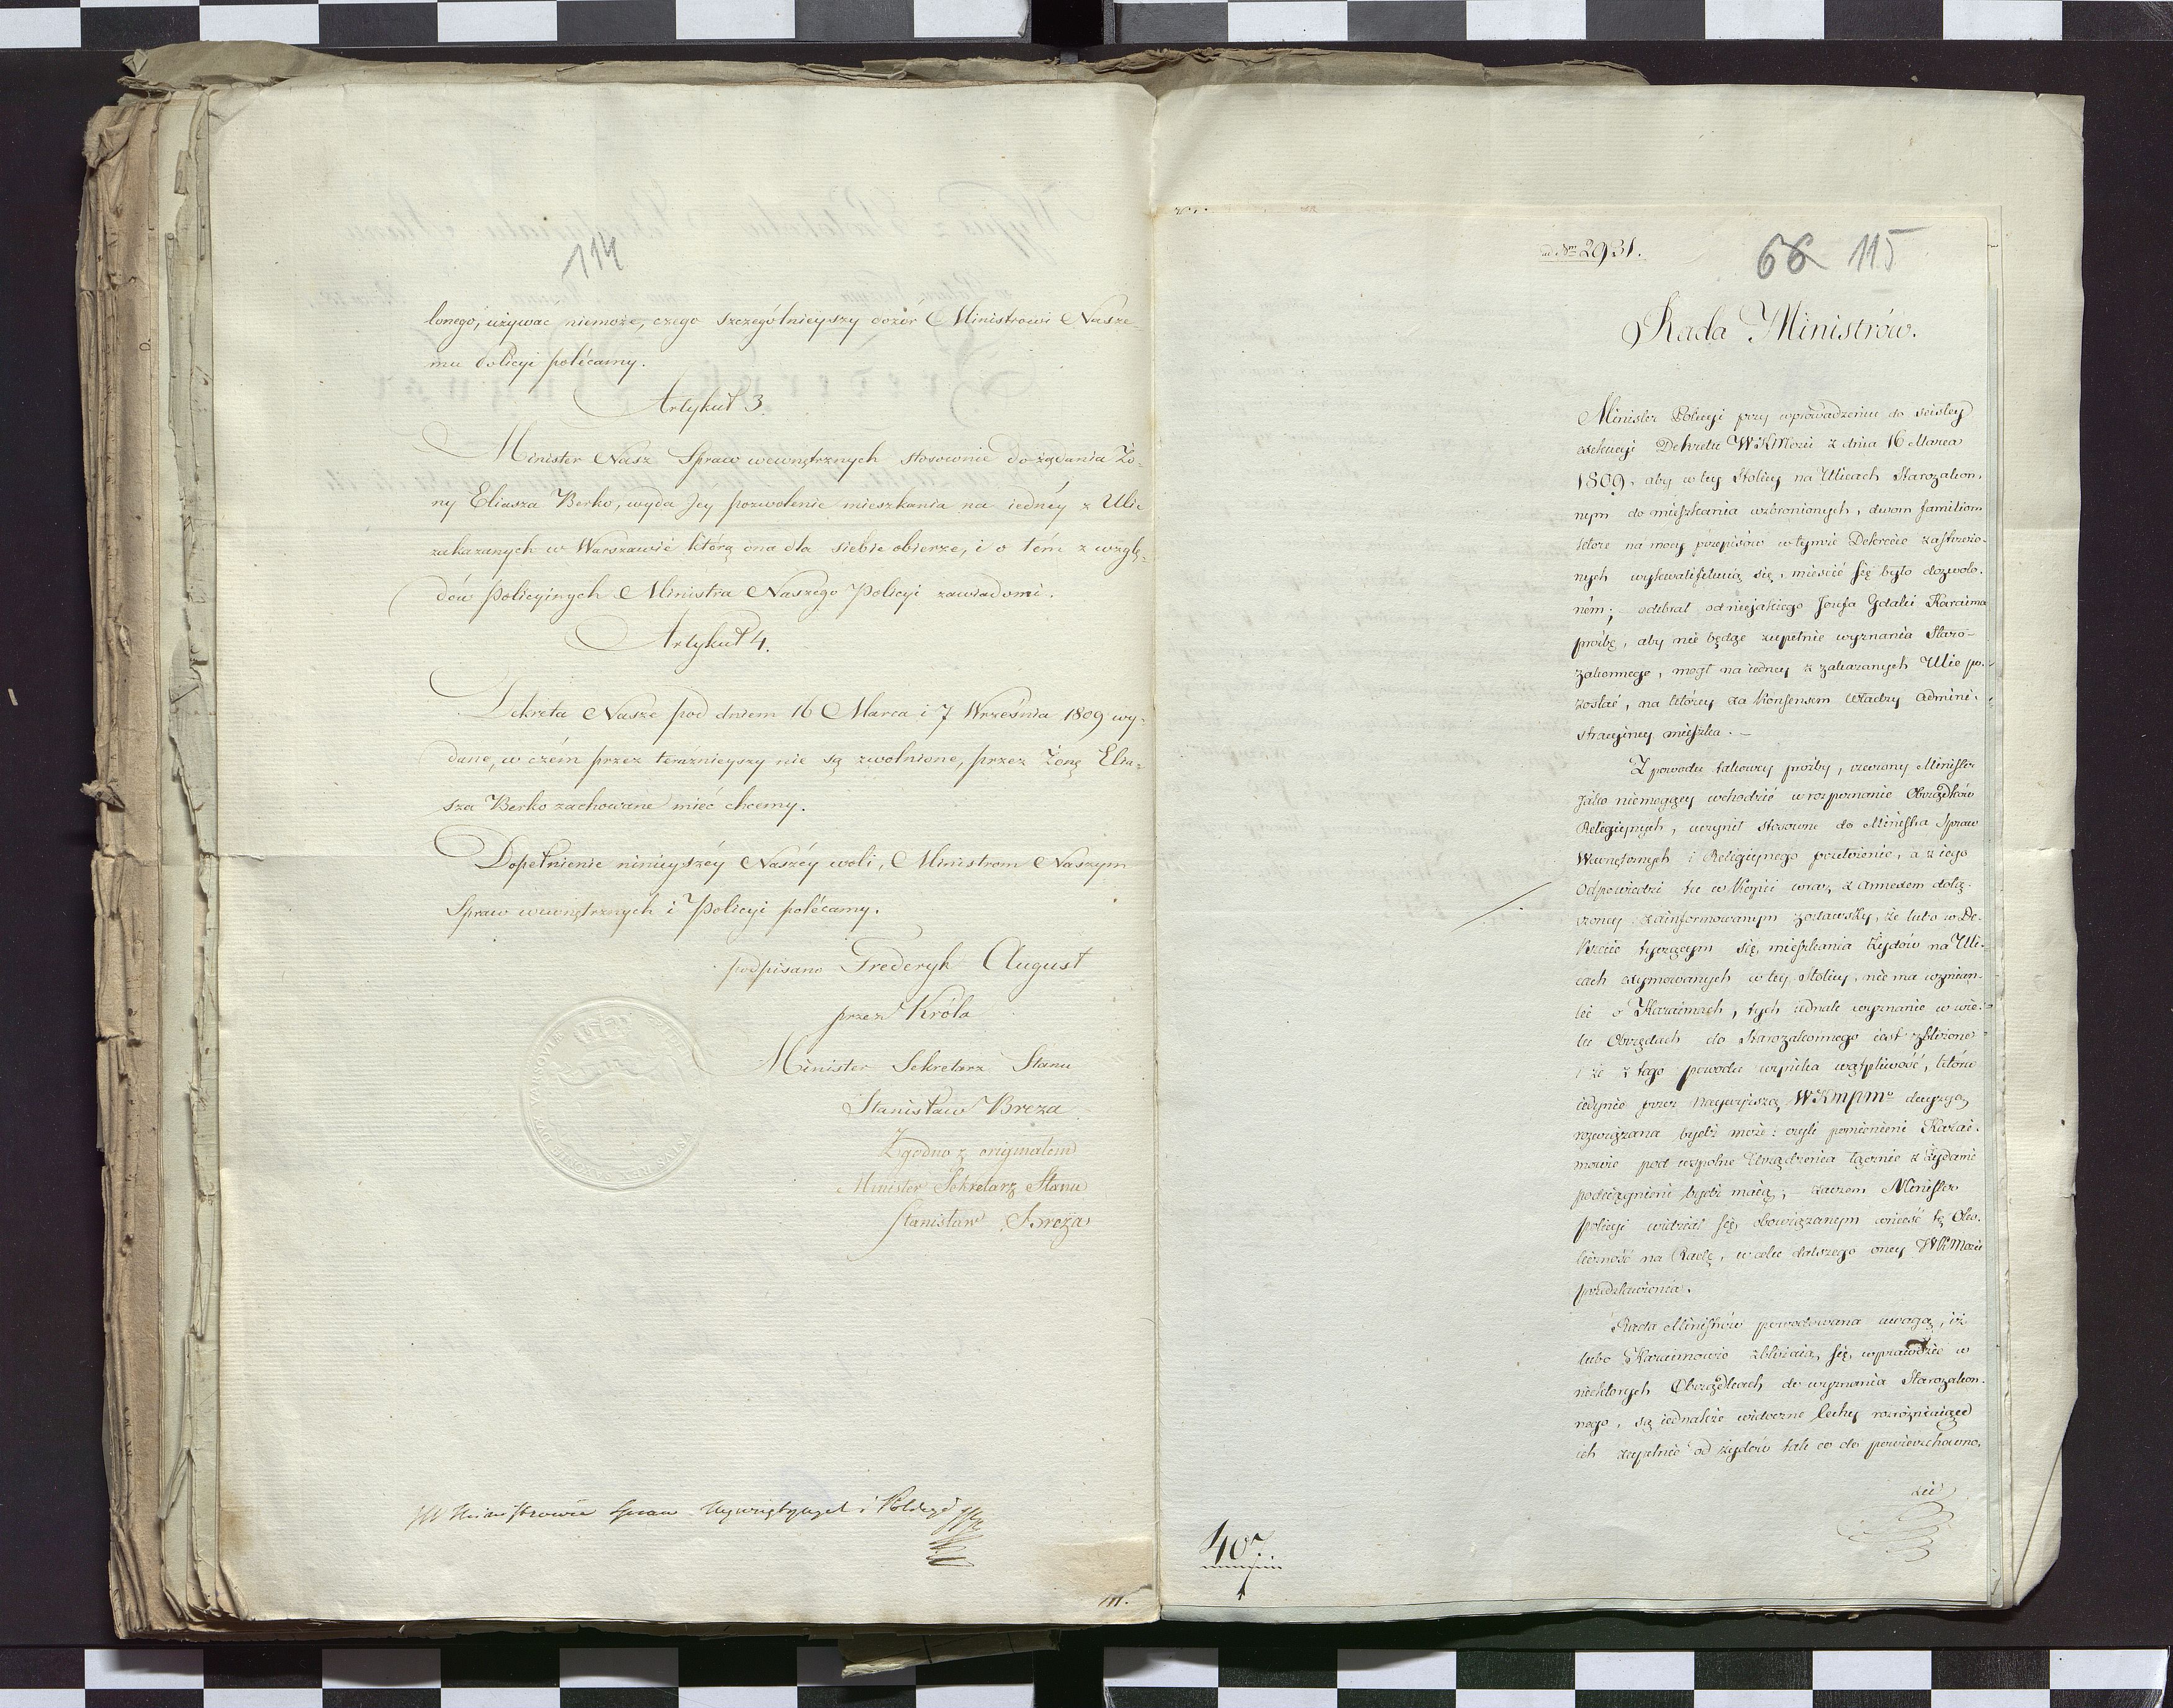 114
lonego, używać niemoże, czego szczególnieyszy dozór Ministrowi Nasze-
mu Policyi polécamy.
Artykuł 3.
Minister Nasz Spraw wewnętrznych stosownie do żądania Żo-
ny Eliasza Berko, wyda Jey pozwolenie mieszkania na iednéy z Ulic
zakazanych w Warszawie którą ona dla siebie obierze, i o tém z wzglę-
dów Policyinych Ministra Naszego Policyi zawiadomi.
Artykuł 4.
Dekreta Nasze pod dniem 16 Marca i 7 Września 1809 wy-
dane, w czém przez teraznieyszy nie są zwolnione, przez Żonę Elia-
sza Berko zachowane mieć chcemy.
Dopełnienie ninieyszéy Naszéy woli, Ministrom Naszym
Spraw wewnętrznych i Policyi polécamy.
podpisano Frederyk August
przez Króla
Minister Sekretarz Stanu
Stanisław Breza
Zgodno z originałem
Minister Sekretarz Stanu
Stanisław Breza
Ministrowie Spraw Wewnętrznych i Policyi
111.
ad Nrm 2931.
66 115
Rada Ministrów.
Minister Policyi przy wprowadzeniu do scisłey
exekucyi Dekretu WKMości z dnia 16 Marca
1809, aby w tey Stolicy na Ulicach Starozakon-
nym do mieszkania wzbronionych, dwom familiom
które na mocy przepisów w tymże Dekrecie zastrzeżo-
nych wykwalifikuią się, mieścić się było dozwolo-
ném; odebrał od niejakiego Jozefa Zdaki Karaima
prośbę, aby nie będąc zupełnie wyznania Staro-
zakonnego, mógł na iedney z zakazanych Ulic po-
zostać, na którey za Konsensem Władzy Admini-
stracyiney mieszka. —
Z powodu takowey prośby, rzeczony Minister
Jako niemogący wchodzić w rozpoznanie Obrządków
Religiynych, uczynił stosowne do Ministra Spraw
Wewnętrznych i Religiynego przełożenie, a z iego
odpowiedzi tu w Kopii wraz z Annexem dołą-
czoney zainformowanym zostawszy, że lubo w De-
krecie tyczącym się mieszkania Żydów na Uli-
cach exymowanych w tey Stolicy, nie ma wzmian-
ki o Karaimach, tych iednak wyznanie w wie-
lu Obrzędach do Starozakonnego iest zbliżone
i że z tego powodu wynika wątpliwość, która
iedynie przez Naywyższą WKMPMo decyzyą
rozwiązana bydź może: czyli pomienieni Karai-
mowie pod wspolne Urządzenia łącznie z Żydami
podciągnieni bydź maią; — zaczem Minister
Policyi widział się obowiązanym wnieść tę Oko-
liczność na Radę, w celu dalszego oney WKMości
przedstawienia.
Rada Ministrów powodowana uwagą, iż
lubo Karaimowie zbliżaią się wprawdzie w
niektorych Obrządkach do wyznania Starozakon-
nego, są iednakże widoczne cechy rozróżniaiące
ich zupełnie od żydów tak co do powierzchowno-
ści
40.